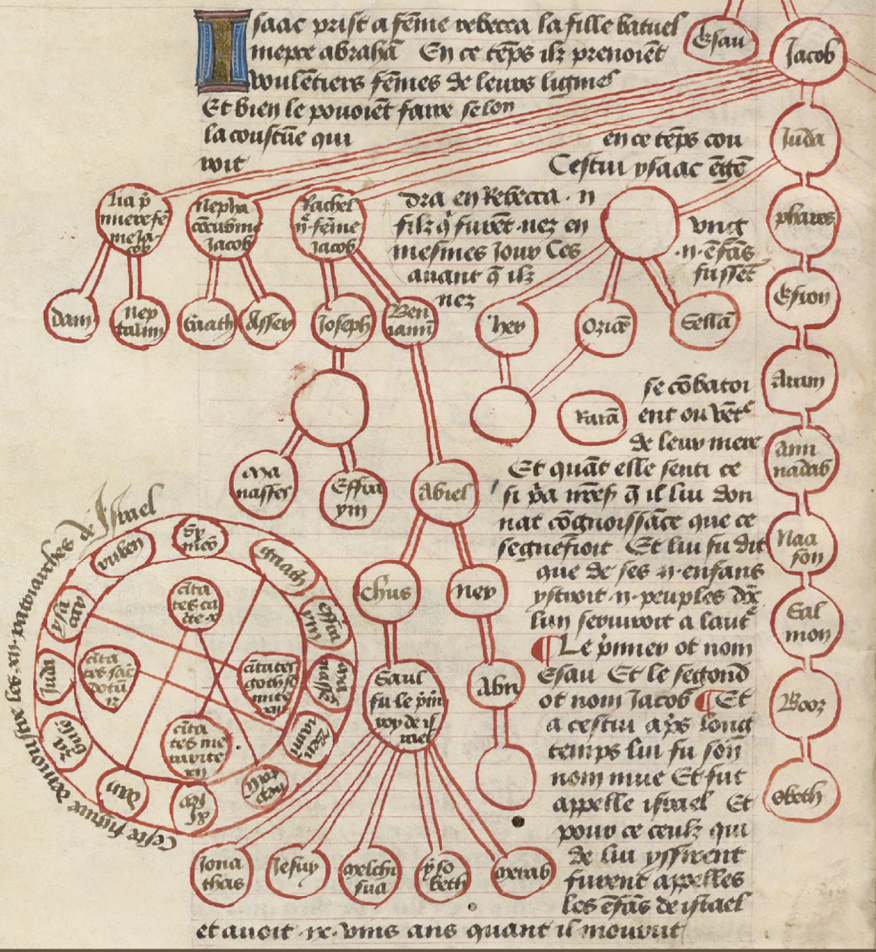 Isaac prist a fēme rebecca la fille batuel
Esau
Jacob
niepce abrahā En ce tēps ilz prenoiēt
voulētiers fēmes de leurs lignies
Et bien le pouoiēt faire selon
la coustūe qui en ce tēps cou
roit Cestui ysaac ēgē
dra en Rebecca .ii. filz q̄ furēt nez en
mesmes Jour Ces .ii. ēfās
auant q̄ ilz fussēt
nez
se cōbatoi
ent ou vēt
de leur mere
Et quāt elle senti ce
si p̄a q̄ il lui don
nat cōgnoissāce que ce
segnefioit Et lui fu dit
que de ses .ii. enfans
ystroit .ii. peuples
lun serviroit a lautͤ
¶ Le p̄mier ot nom
Esau Et le segond
ot nom Jacob ¶ Et
a cestui ap̄s long
temps lui fu son
nom mue Et fut
appelle israel Et
pour ce ceulz qui
de lui yssirent
furent appelles
les ēfās de israel
et avoit ans quant il mourut
Juda
phares
Esron
Aram
Ami
nadab
Naa
son
Sal
mon
Booz
obeth
lia p̄
miere fē
me Ja
cob
cōcubine
Jacob
Rachel
.ii. fēme
Jacob
dam
nep
talim
Gaath
Asser
Joseph
Ben
iami
her
Sellā
ma
nasses
Effra
ym
Abiel
Chus
ner
Saul
fu le p̄m
roy de is
rael
Abn
Jona
thas
Jesuy
melchi
sua
yso
beth
merab
Ceste figure demonstre les .xii. patriarches de Israel
ruben
Sy
meō
gaath
effra
ym
ma
nasse
Ben
iami
dan
za
bulō
Juda
ysa
car
cita
tes ca
cita
tes sac̄
dotū
cītates
cīta
tes me